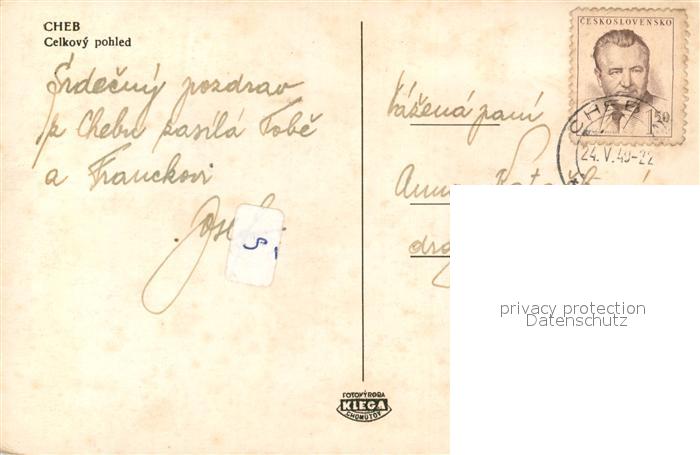 CHEB
Celkový pohled
Srdečný pozdrav
z Chebu zasílá Tobě
a Franckovi
ČESKOSLOVENSKO
1,50
CHEB
24.V.49-22
Vážená paní
S
privacy protection
Datenschutz
FOTOVÝROBA
KLEGA
CHOMUTOV